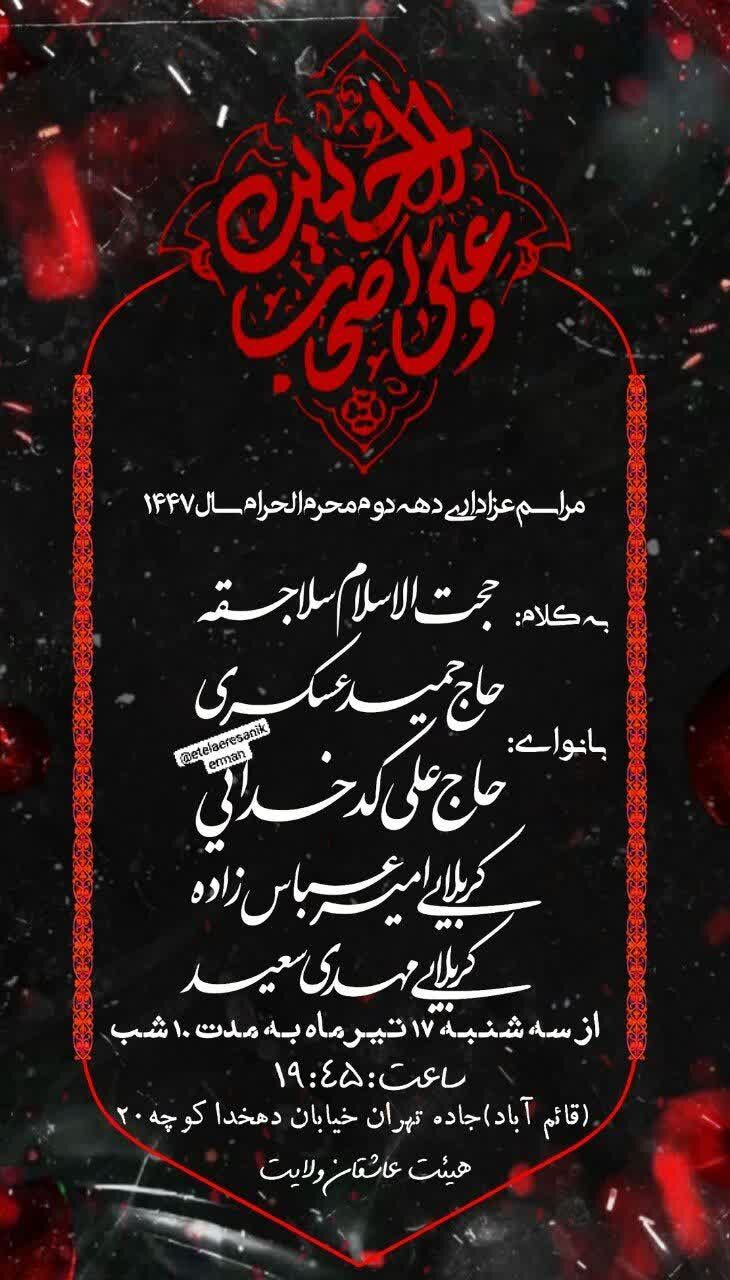 وعلی اصحاب الحسین
مراسم عزاداری دهه دوم محرم الحرام سال ۱۴۴۷
به کلام: حجت الاسلام سلاجقه
بانوای: حاج حمید عسکری
@etelaeresanik
erman
حاج علی کدخدائی
کربلایی امیر عباس زاده
کربلایی مهدی سعید
از سه شنبه ۱۷ تیر ماه به مدت ۱۰ شب
ساعت: ۱۹:٤۵
(قائم آباد)جاده تهران خیابان دهخدا کوچه ۲۰
هیئت عاشقان ولایت